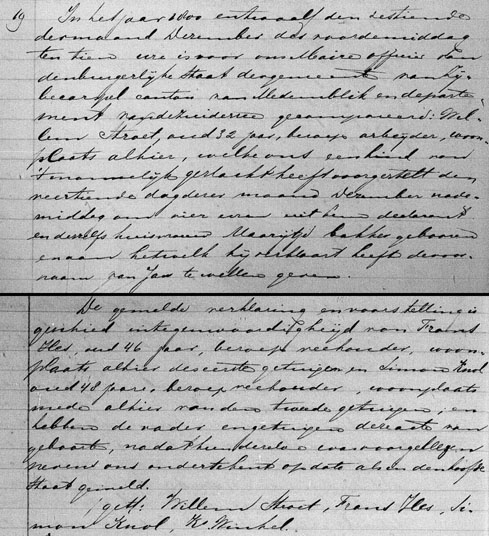 19 In het jaar 1800 en twaalf den zestiende
der maand Dezember des voordemiddag
ten tien ure is voor ons Maire officier van
den burgerlijke Staat der gemeente van Sij-
becarspel canton van Medemblik en departe-
ment van de Zuiderzee gecompareerd: Wil-
lem Stroet, oud 32 jaar, beroep arbeijder, woon-
plaats alhier, welke ons een kind van
't mannelijk geslacht heeft voorgesteld den
veertiende dag dezer maand Dezember nade-
middag om vier uren uit hem declarant
en deszelfs huisvrouw Maartje Bakker geboren
en aan hetwelk hij verklaart heeft de voor-
naam van Jan te willen geven.
De gemelde verklaring en voorstelling is
geschied in tegenwoordigheijd van Frans
Iles, oud 46 jaar, beroep veehouder, woon-
plaats alhier de eerste getuigen, en Simon Knol
oud 48 jaar, beroep veehouder, woonplaats
mede alhier van den tweede getuigen; en
hebben de vader en getuigen de acte van
geboorte, nadat hen dezelve was voorgelezen
nevens ons ondertekent op dato als in den hoofde
staat gemeld.
get: Willem Stroet, Frans Iles, Si-
mon Knol, K. Winkel.